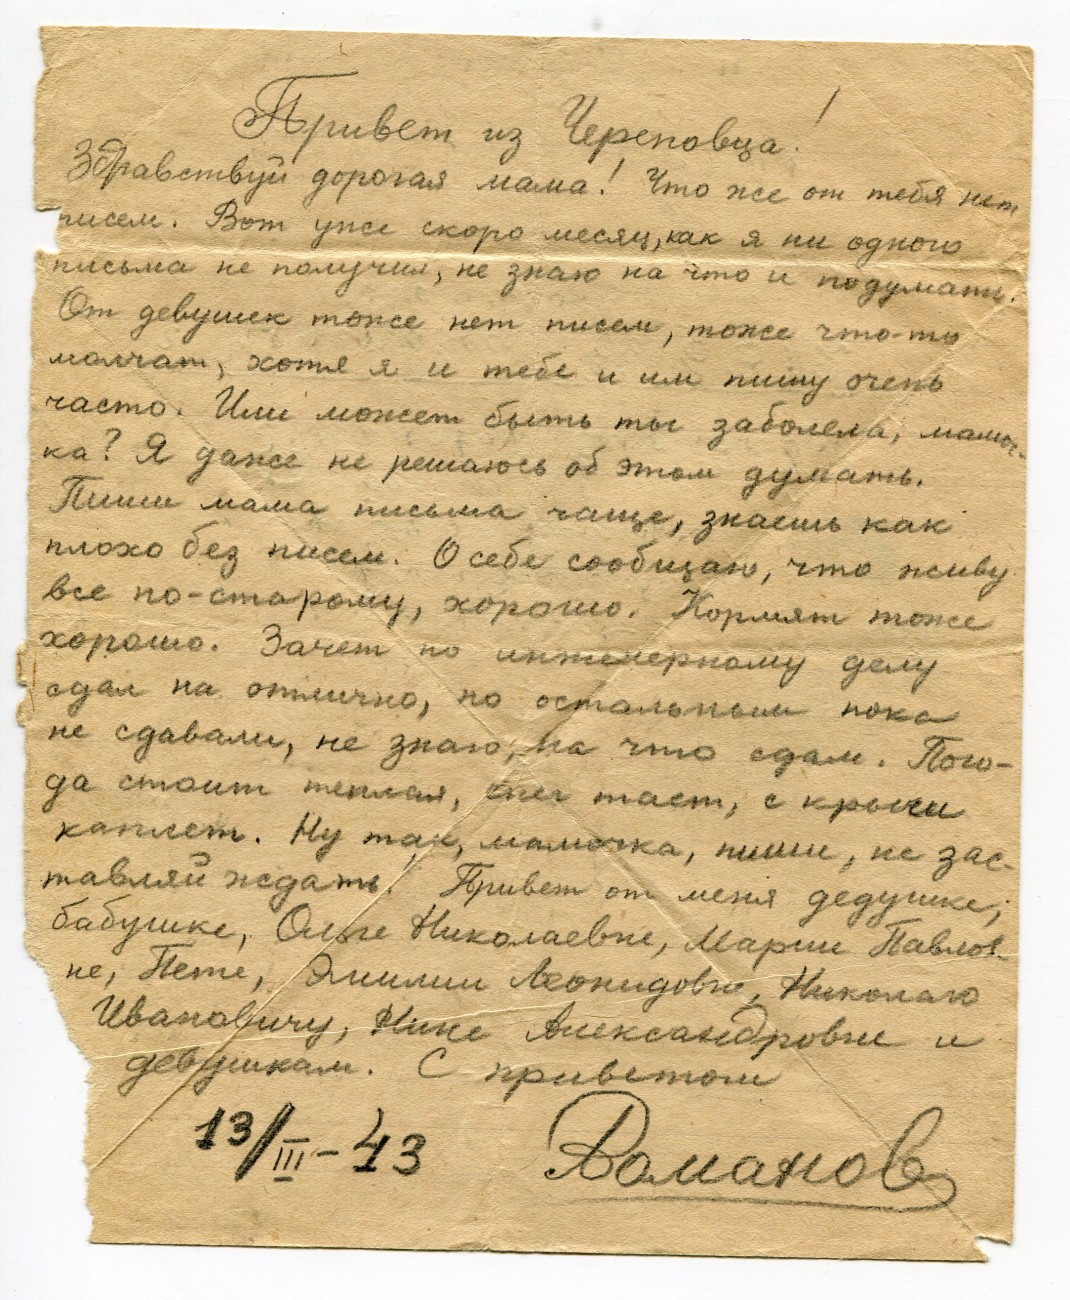 Привет из Череповца!
Здравствуй дорогая мама! Что же от тебя нет
писем. Вот уже скоро месяц, как я ни одного
письма не получил, не знаю на что и подумать.
От девушек тоже нет писем, тоже что-то
молчат, хотя я и тебе и им пишу очень
часто. Или может быть ты заболела, мамоч-
ка? Я даже не решаюсь об этом думать.
Пиши мама письма чаще, знаешь как
плохо без писем. О себе сообщаю, что живу
все по-старому, хорошо. Кормят тоже
хорошо. Зачет по инженерному делу
сдал на отлично, по остальным пока
не сдавали, не знаю, на что сдам. Пого-
да стоит теплая, снег тает, с крыши
каплет. Ну так, мамочка, пиши, не зас-
тавляй ждать. Привет от меня дедушке,
бабушке, Ольге Николаевне, Марии Павлов-
не, Пете, Эмилии Леонидовне, Николаю
Ивановичу, Нине Александровне и
девушкам. С приветом
13/III-43 Романов